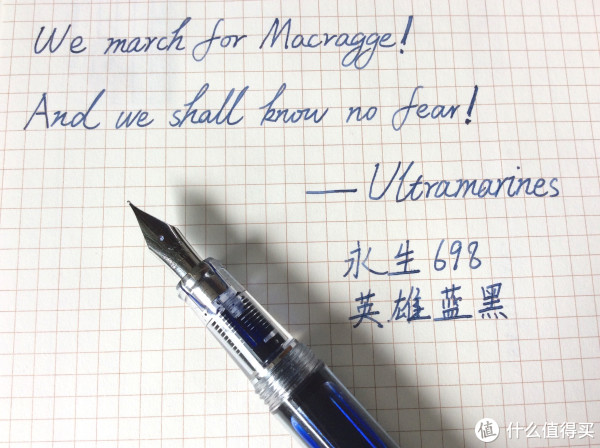 We march for Macragge!
And we shall know no fear!
— Ultramarines
永生 698
英雄蓝黑
值 什么值得买